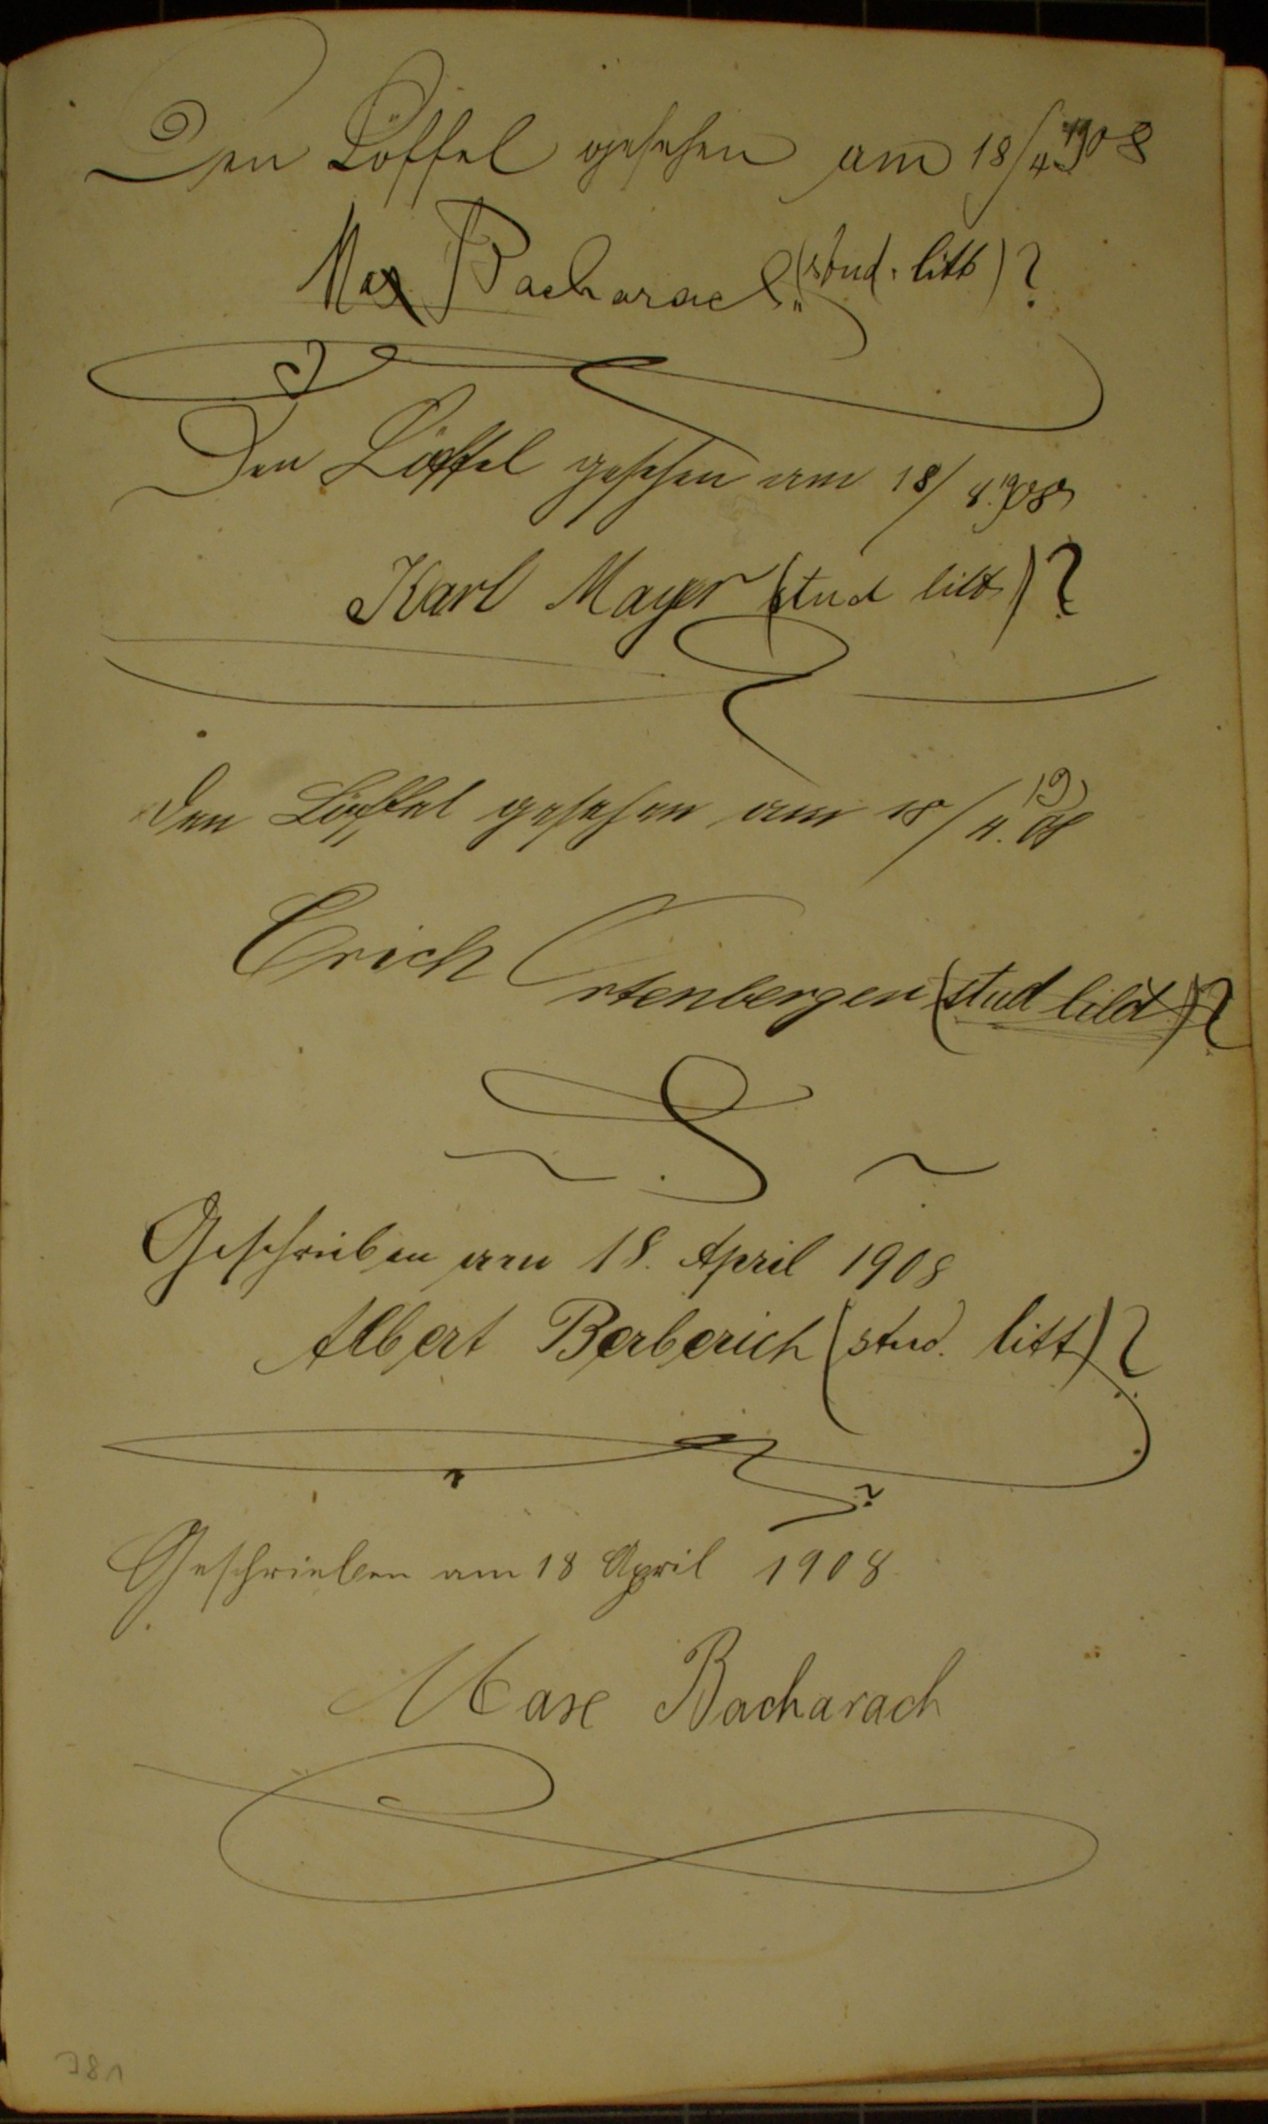 Den Löffel gesehen am 18/4 1908
Max Bacharach (stud. litt) ?
Den Löffel gesehen am 18/4. 1908
Karl Mayer (stud litt) ?
Den Löffel gesehen am 18/4. 1908
Erich Ortenberger (stud litt) ?
Geschrieben am 18. April 1908
Albert Berberich (stud. litt) ?
Geschrieben am 18 April 1908
Max Bacharach
381